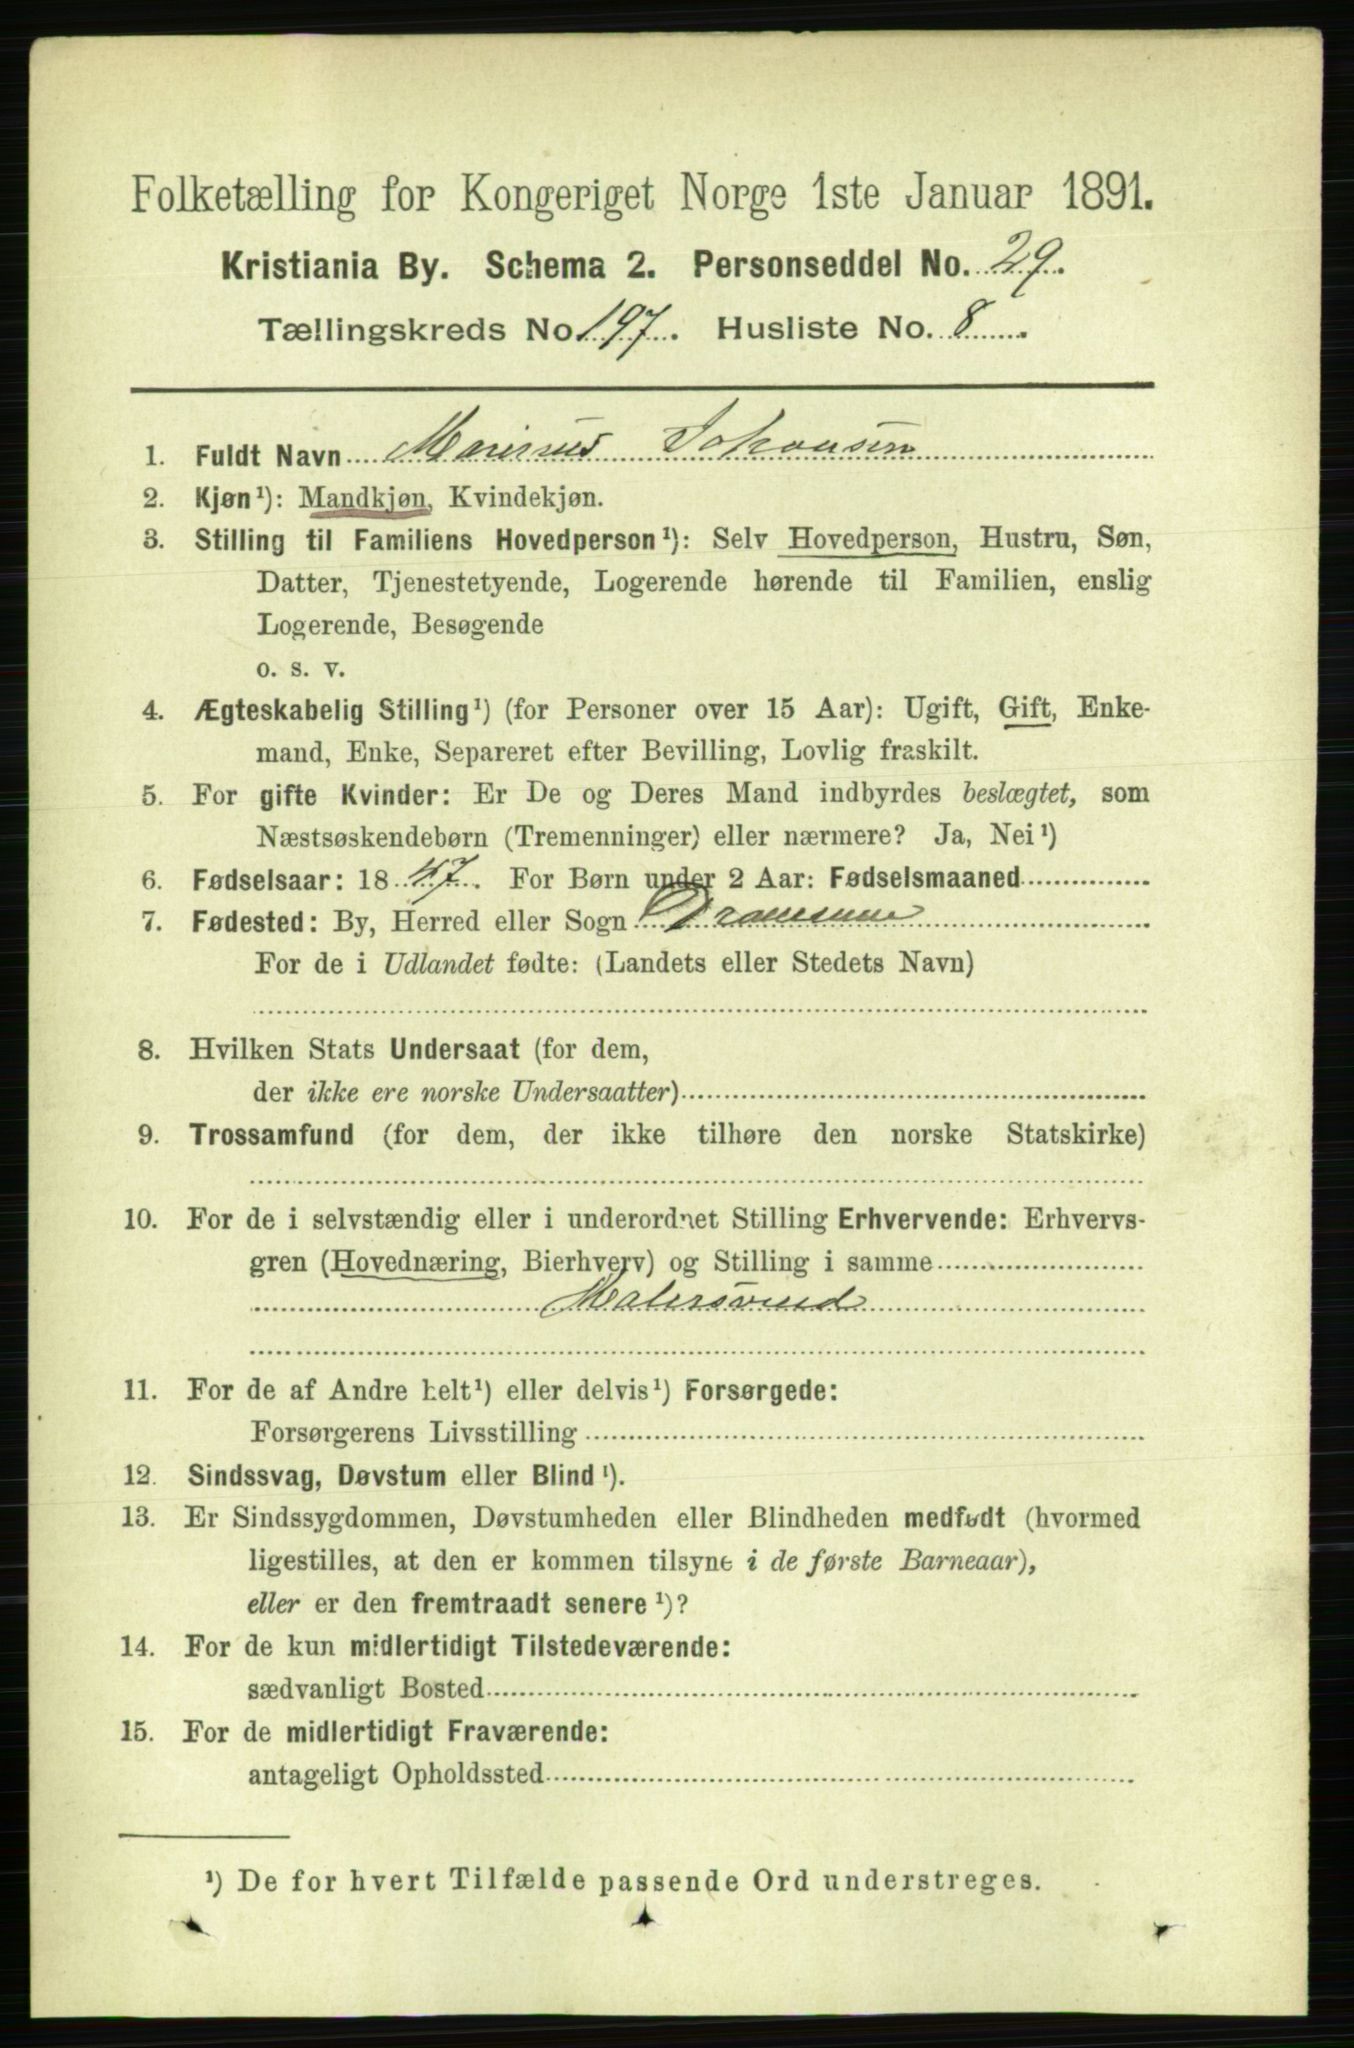 Folketælling for Kongeriget Norge 1ste Januar 1891.
Kristiania By. Schema 2. Personseddel No. 29.
Tællingskreds No. 197. Husliste No. 8
1. Fuldt Navn Marinus Johansen
2. Kjøn¹): Mandkjøn, Kvindekjøn.
3. Stilling til Familiens Hovedperson¹): Selv Hovedperson, Hustru, Søn,
Datter, Tjenestetyende, Logerende hørende til Familien, enslig
Logerende, Besøgende
o. s. v.
4. Ægteskabelig Stilling¹) (for Personer over 15 Aar): Ugift, Gift, Enke-
mand, Enke, Separeret efter Bevilling, Lovlig fraskilt.
5. For gifte Kvinder: Er De og Deres Mand indbyrdes beslægtet, som
Næstsøskendebørn (Tremenninger) eller nærmere? Ja, Nei¹)
6. Fødselsaar: 1847. For Børn under 2 Aar: Fødselsmaaned
7. Fødested: By, Herred eller Sogn Drammen
For de i Udlandet fødte: (Landets eller Stedets Navn)
8. Hvilken Stats Undersaat (for dem,
der ikke ere norske Undersaatter)
9. Trossamfund (for dem, der ikke tilhøre den norske Statskirke)
10. For de i selvstændig eller i underordnet Stilling Erhvervende: Erhvervs-
gren (Hovednæring, Bierhverv) og Stilling i samme
Malersvend
11. For de af Andre helt¹) eller delvis¹) Forsørgede:
Forsørgerens Livsstilling
12. Sindssvag, Døvstum eller Blind¹).
13. Er Sindssygdommen, Døvstumheden eller Blindheden medfødt (hvormed
ligestilles, at den er kommen tilsyne i de første Barneaar),
eller er den fremtraadt senere¹)?
14. For de kun midlertidigt Tilstedeværende:
sædvanligt Bosted
15. For de midlertidigt Fraværende:
antageligt Opholdssted
¹) De for hvert Tilfælde passende Ord understreges.